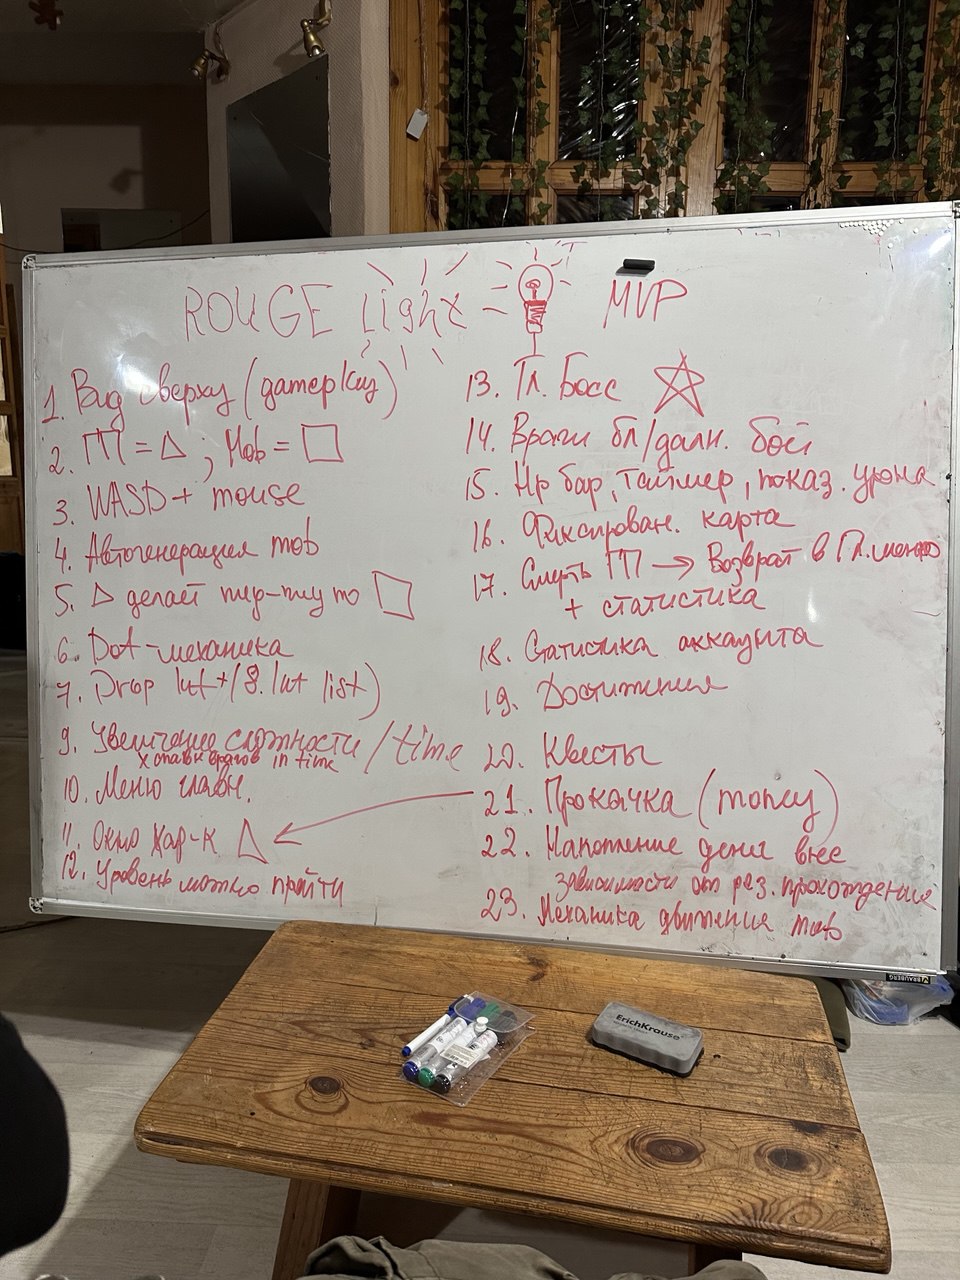 ROUGE Light - MVP
1. Вид сверху (датерксиу)
2. ГП = △ ; Mob = □
3. WASD + mouse
4. Автогенерация mob
5. △ делает пиу-пиу по □
6. Dot-механика
7. Drop lut+/8. lut list)
9. Увеличение сложности / time
x спавн врагов in time
10. Меню главн.
11. Окно хар-к △
12. Уровень можно пройти
13. Гл. Босс
14. Враги бл/дальн. бой
15. Hp бар, таймер, показ. урона
16. Фиксирован. карта
17. Смерть ГП → Возврат в Гл. меню
+ статистика
18. Статистика аккаунта
19. Достижения
20. Квесты
21. Прокачка (money)
22. Накопление денег вне
зависимости от рез. прохождения
23. Механика движения mob
BRAUBERG
ErichKrause